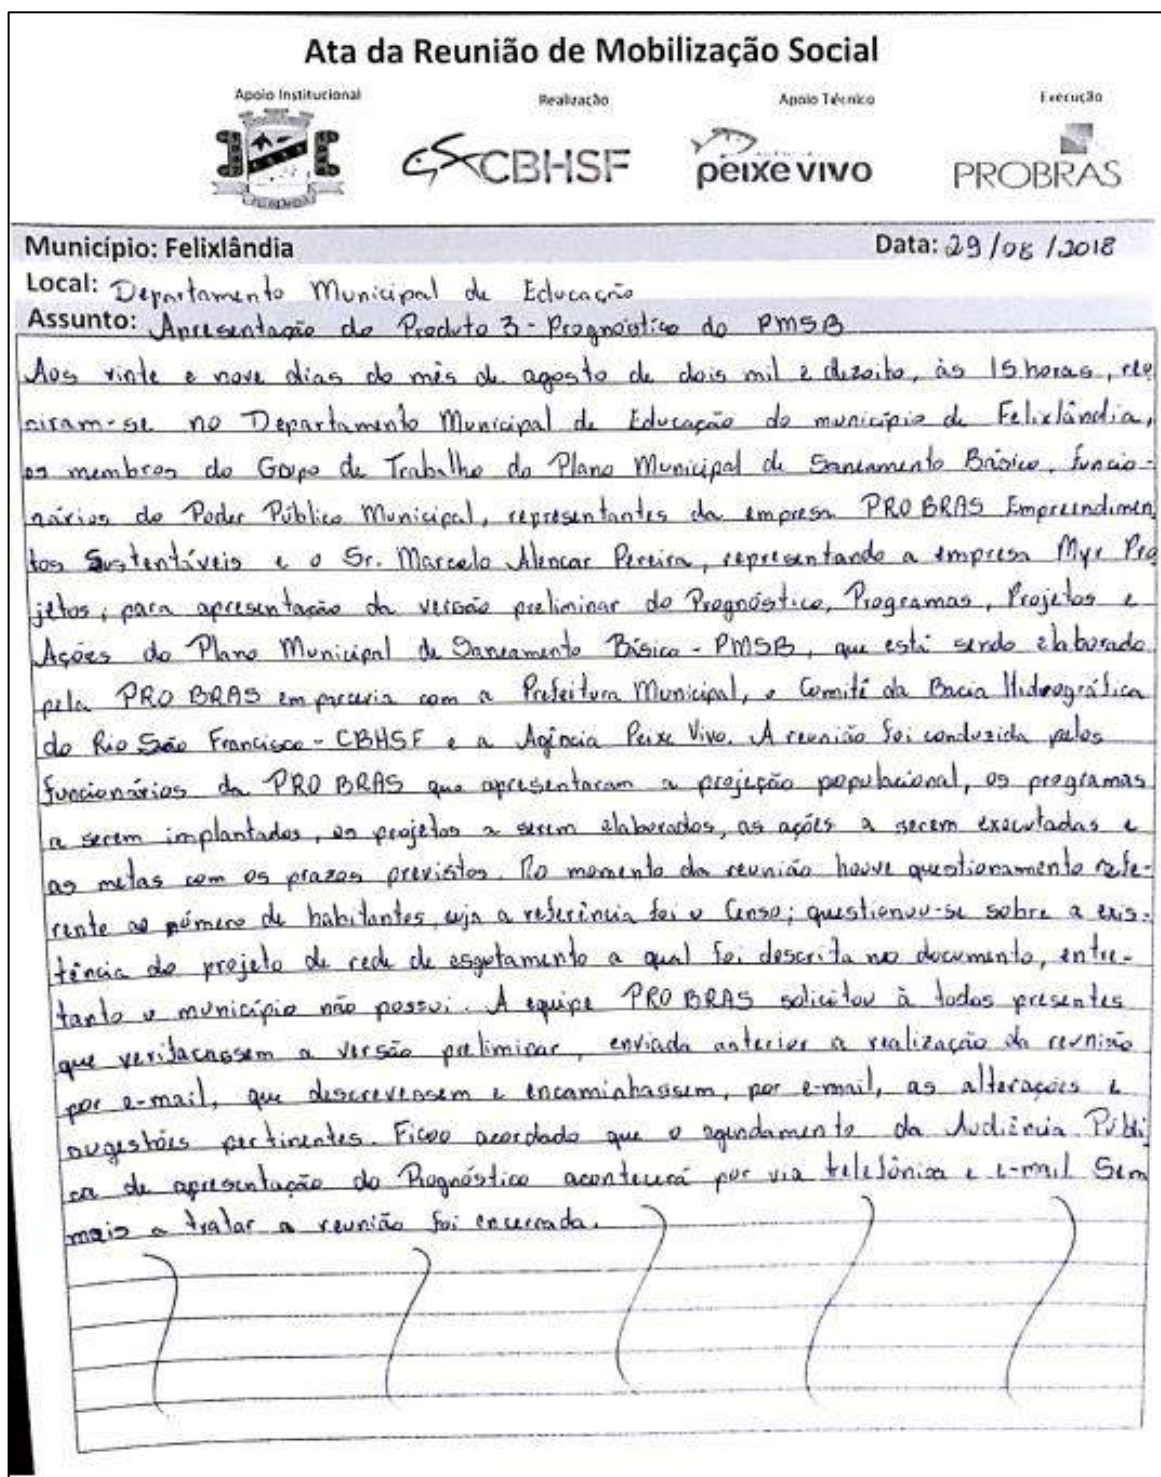 Ata da Reunião de Mobilização Social
Apoio Institucional Realização Apoio Técnico Execução
CBHSF peixe vivo PROBRAS
Município: Felixlândia Data: 29/08/2018
Local: Departamento Municipal de Educação
Assunto: Apresentação do Produto 3 - Prognóstico do PMSB
Aos vinte e nove dias do mês de agosto de dois mil e dezoito, às 15 horas, reu
niram-se no Departamento Municipal de Educação do município de Felixlândia,
os membros do Grupo de Trabalho do Plano Municipal de Saneamento Básico, funcio-
nários do Poder Público Municipal, representantes da empresa PRO BRAS Empreendimen
tos Sustentáveis e o Sr. Marcelo Alencar Pereira, representando a empresa Myr Pro
jetos, para apresentação da versão preliminar do Prognóstico, Programas, Projetos e
Ações do Plano Municipal de Saneamento Básico - PMSB, que está sendo elaborado
pela PRO BRAS em parceria com a Prefeitura Municipal, o Comitê da Bacia Hidrográfica
do Rio São Francisco - CBHSF e a Agência Peixe Vivo. A reunião foi conduzida pelos
funcionários da PRO BRAS que apresentaram a projeção populacional, os programas
a serem implantados, os projetos a serem elaborados, as ações a serem executadas e
as metas com os prazos previstos. No momento da reunião houve questionamento refe-
rente ao número de habitantes, cuja a referência foi o Censo; questionou-se sobre a exis-
tência do projeto de rede de esgotamento a qual foi descrita no documento, entre-
tanto o município não possui. A equipe PRO BRAS solicitou à todos presentes
que verificassem a versão preliminar, enviada anterior a realização da reunião
por e-mail, que descrevessem e encaminhassem, por e-mail, as alterações e
sugestões pertinentes. Ficou acordado que o agendamento da Audiência Públi
ca de apresentação do Prognóstico acontecerá por via telefônica e e-mail Sem
mais a tratar a reunião foi encerrada.